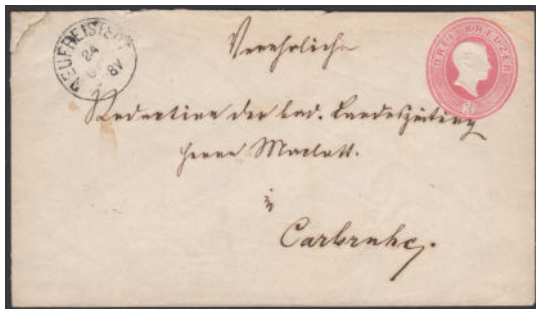 NEUFREISTETT
24
8V
DREI KREUZER
Verehrliche
Redaction der bad. Landeszeitung
Herrn Macklott.
in
Carlsruhe.